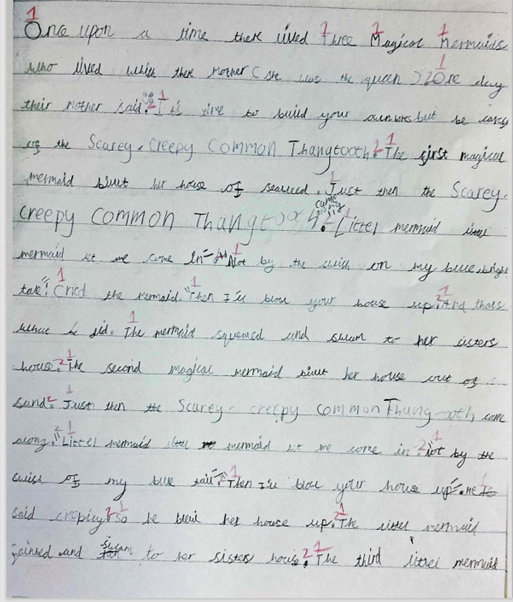 Once upon a time there lived Three Magical Mermaids
who lived with there mother ( she was the queen ) One day
their mother said "It is time to build your own but be
of the Scarey-Creepy Common Thangtooth. The first magical
mermaid biuit her house of seaweed. Just then the Scarey-
creepy common Thangtooth came. "Littel mermaid littel
mermaid let me come in" "Not by the swish on my blue bright
tail" Cried the mermaid. "Then I'll blow your house up". And thats
what he did. The mermaid squealed and swam to her sisters
house. The second magical mermaid biuit her house out of
sand. Just then the Scarey-creepy common Thang-tooth came
along. "Littel mermaid littel mermaid let me come in" "Not by the
swish of my blue tail" "Then I'll blow your house up". he
said So he blew her house up. The littel mermaid
and swam to her sister house. The third littel mermaid